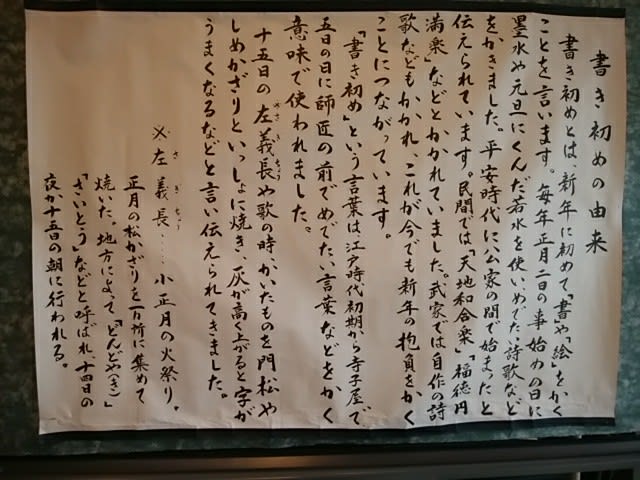 書き初めの由来
書き初めとは、新年に初めて「書や「絵」をかく
ことを言います。毎年正月二日の事始めの日に
墨水や元旦にくんだ若水を使い、めでたい詩歌など
をかきました。平安時代に、公家の間で始まったと
伝えられています。民間では「天地和合楽」「福徳円
満楽」などとかかれていました。武家では自作の詩
歌などもかかれ、これが今でも新年の抱負をかく
ことにつながっています。
「書き初め」という言葉は、江戸時代初期から寺子屋で
五日の日に師匠の前でめでたい言葉などをかく
意味で使われました。
十五日の左義長や歌の時、かいたものを門松や
しめかざりといっしょに焼き、灰が高く上がると字が
うまくなるなどと言い伝えられてきました。
※左義長……小正月の火祭り。
正月の松かざりを一カ所に集めて
焼いた。地方によって、「どんどや(き)」
「さいとう」などと呼ばれ、十四日の
夜か十五日の朝に行われる。